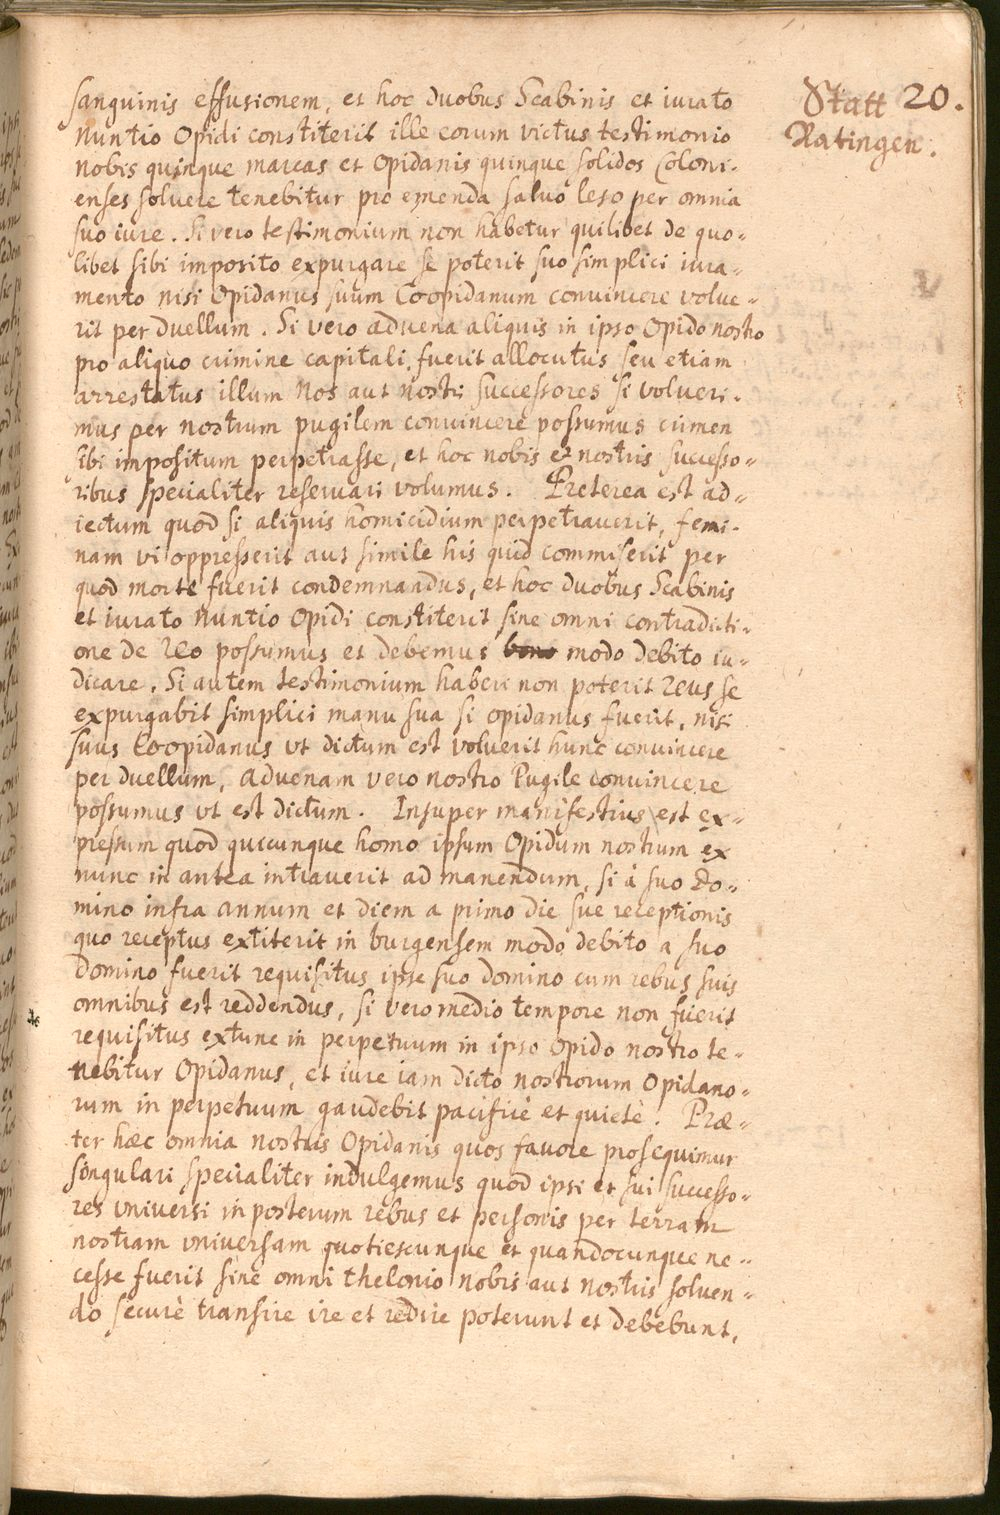 Statt 20.
Ratingen.
sanguinis effusionem, et hoc duobus Scabinis et iurato
nuntio Opidi constiterit ille eorum victus testimonio
nobis quinque marcas et Opidanis quinque solidos Coloni-
enses soluere tenebitur pro emenda saluo leso per omnia
suo iure. Si vero testimonium non habetur quilibet de quo-
libet sibi imposito expurgare se poterit suo simplici iura-
mento nisi Opidanus suum Coopidanum convincere volue-
rit per duellum. Si vero advena aliquis in ipso Opido nostro
pro aliquo crimine capitali fuerit allocutus seu etiam
arrestatus illum Nos aut nostri successores si volueri-
mus per nostrum pugilem convincere possumus crimen
sibi impositum perpetrasse, et hoc nobis et nostris successo-
ribus specialiter reservari volumus. Preterea est ad-
iectum quod si aliquis homicidium perpetraverit, femi-
nam vi oppresserit aut simile his quid commiserit per
quod morte fuerit condemnandus, et hoc duobus Scabinis
et iurato nuntio Opidi constiterit sine omni contradicti-
one de Reo possumus et debemus bono modo debito iu-
dicare. Si autem testimonium haberi non poterit Reus se
expurgabit simplici manu sua si opidanus fuerit, nisi
suus Coopidanus vt dictum est voluerit hunc convincere
per duellum, advenam vero nostro Pugile convincere
possumus vt est dictum. Insuper manifestius est ex-
pressum quod quicunque homo ipsum Opidum nostrum ex
nunc in antea intraverit ad manendum, si à suo Do-
mino infra annum et diem a primo die sue receptionis
quo receptus extiterit in burgensem modo debito a suo
Domino fuerit requisitus ipse suo domino cum rebus suis
omnibus est reddendus, si vero medio tempore non fuerit
requisitus extunc in perpetuum in ipso opido nostro te-
nebitur Opidanus, et iure iam dicto nostrorum Opidano-
rum in perpetuum gaudebit pacificè et quietè. Præ-
ter hæc omnia nostris Opidanis quos favore prosequimur
singulari specialiter indulgemus quod ipsi et sui successo-
res vniversi in posterum rebus et personis per terram
nostram vniversam quotiescunque et quandocunque ne-
cesse fuerit sine omni thelonio nobis aut nostris soluen-
do securè transire ire et redire poterunt et debebunt,